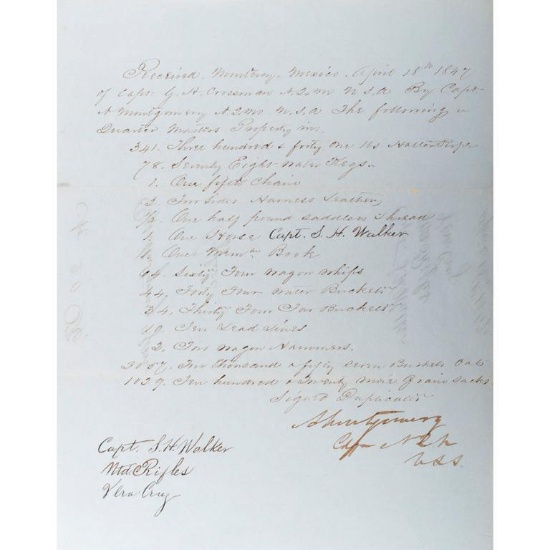 Received, Monterey, Mexico, April 18th 1847
of Capt G. H. Crosman A.Q.M U.S.A By Capt
A Montgomery A.Q.M U.S.A The following
Quarter Masters Property viz
341. Three hundred & forty one lbs Halter Rope
78. Seventy Eight Water Kegs
1. One fifth Chain
2 Two Sides Harness Leather
1/2 One half pound Saddlers Thread
1. One Horse Capt. S. H. Walker
1. One Mem. Book
64. Sixty Four Wagon Whips
44. Forty Four Water Buckets
34. Thirty Four Tar Buckets
10. Ten Lead Lines
2. Two Wagon Hammers.
2057. Two thousand & fifty seven Bushels Oats
1029. Ten hundred & Twenty Nine Grain Sacks
Signed Duplicates
A Montgomery
Capt A.Q.M
U.S.A
Capt. S. H. Walker
Mtd. Rifles
Vera Cruz